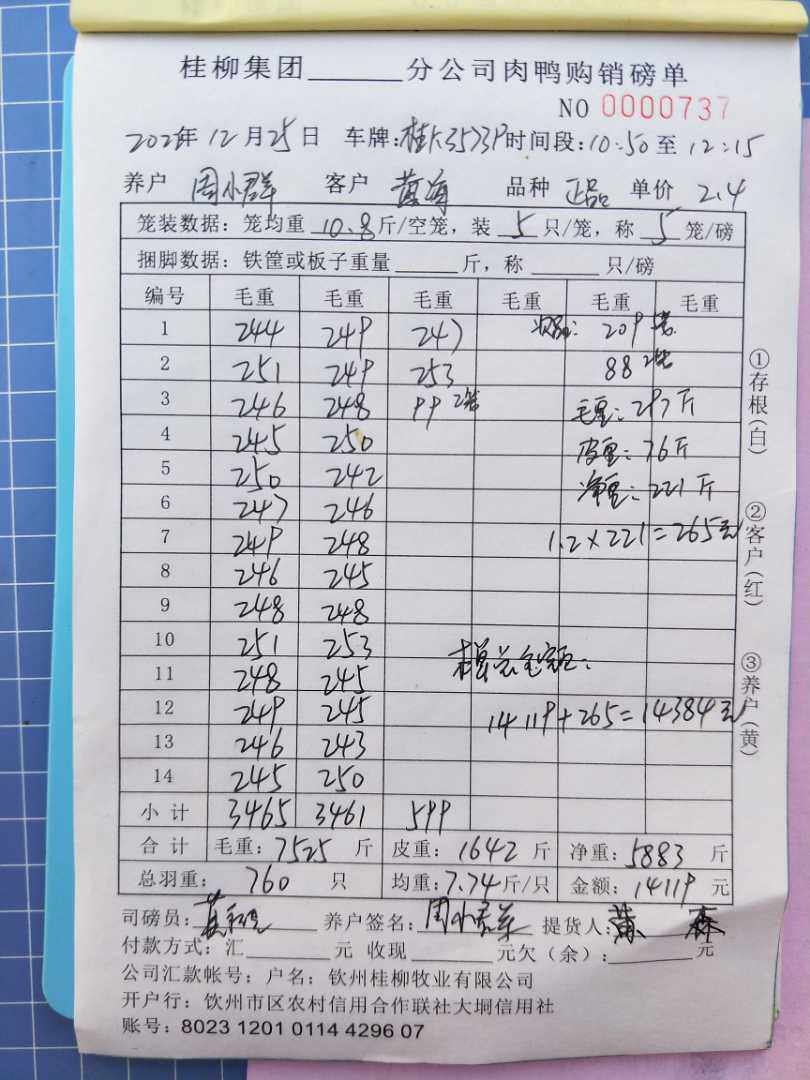 桂柳集团______分公司肉鸭购销磅单
NO 0000737
年 12 月 25 日 车牌: 时间段: 10:50 至 12:15
养户 周小群 客户 品种 正品 单价 2.4
笼装数据: 笼均重 10.8 斤/空笼, 装 5 只/笼, 称 5 笼/磅
捆脚数据: 铁筐或板子重量______斤, 称______只/磅
编号 毛重 毛重 毛重 毛重 毛重 毛重
1 244 249 247 209 5笼
2 251 249 253 88 2笼
3 246 248 99 2笼 毛重: 297斤
4 245 250 皮重: 76斤
5 250 242 净重: 221斤
6 247 246
7 249 248 1.2×221=265元
8 246 245
9 248 248
10 251 253
11 248 245 总金额:
12 249 245 14119+265=14384元
13 246 243
14 245 250
小计 3465 3461 599
合计 毛重: 7525 斤 皮重: 1642 斤 净重: 5883 斤
总羽重: 760 只 均重: 7.74 斤/只 金额: 14119 元
司磅员: 养户签名: 周小群 提货人:
付款方式: 汇______元 收现______元欠(余):______元
公司汇款帐号; 户名: 钦州桂柳牧业有限公司
开户行: 饮州市区农村信用合作联社大垌信用社
账号: 8023 1201 0114 4296 07
①存根(白)
②客户(红)
③养户(黄)